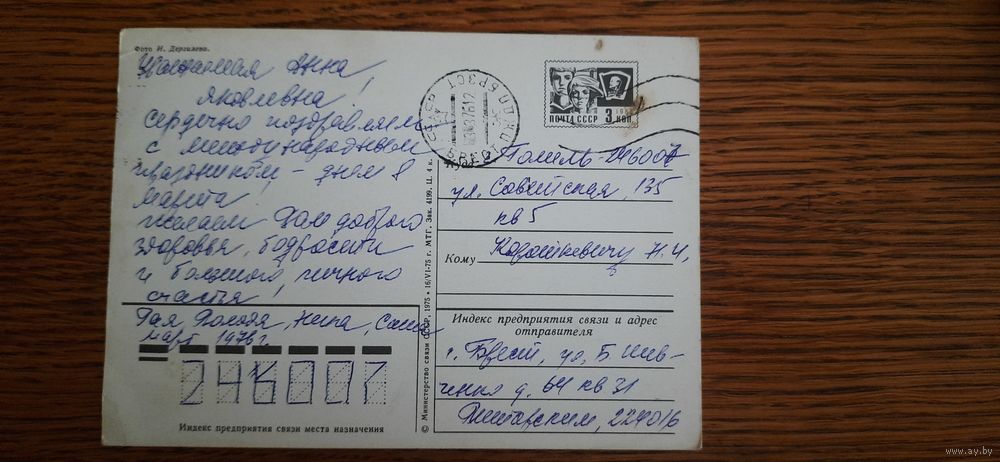 Фото И. Дергилева.
Уважаемая Анна
Яковлевна!
Сердечно поздравляем
с международным
праздником – днем 8
марта!
Желаем Вам доброго
здоровья, бодрости
и большого, личного
счастья!
Рая, Володя, Нина, Саша
март 1976 г.
246007
Индекс предприятия связи места назначения
© Министерство связи СССР, 1975 • 16/VI-75 г. МТГ. Зак. 4199. Ц. 4 к.
БРЕСТ
ПОЧТА СССР 3 КОП
Гомель-246007
ул. Советская, 135
кв 5
Кому Корошкевичу Н.И,
Индекс предприятия связи и адрес
отправителя
г. Брест, ул, Б Шев-
ченко д. 64 кв 31
224016
www.ay.by